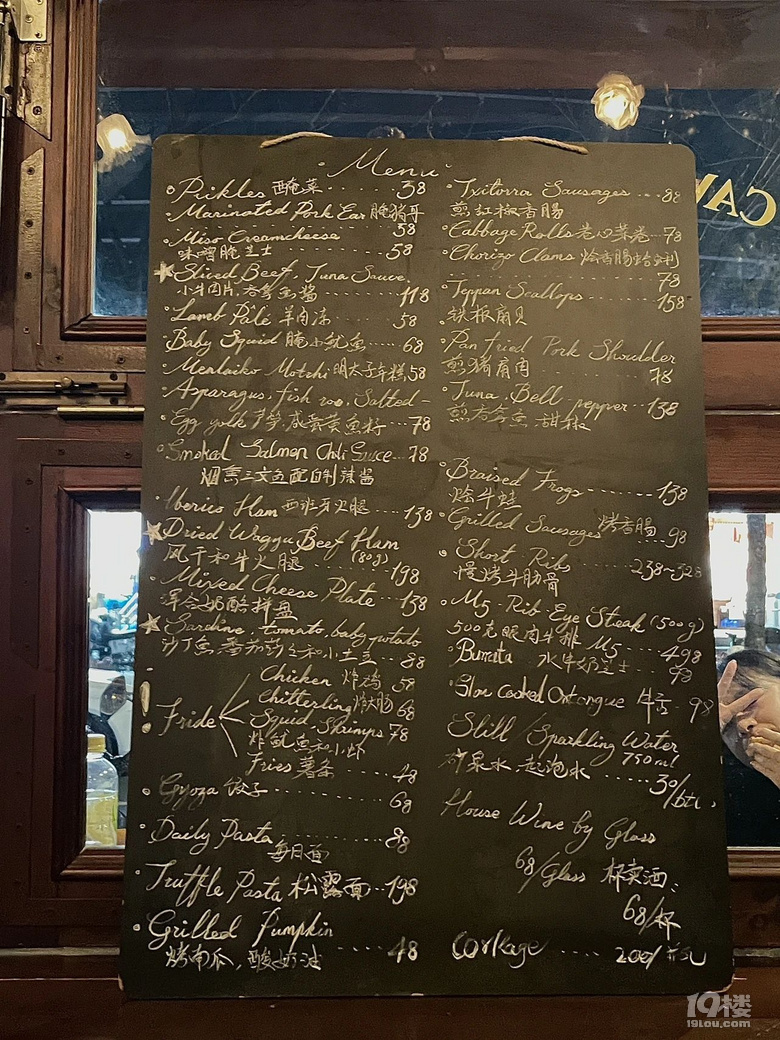 Menu
Pickles 腌菜 ...... 38
Marinated Pork Ear 腌猪耳
58
Miso Creamcheese
味噌腌芝士 58
Sliced Beef, Tuna Sauce
小牛肉片,吞拿鱼酱 118
Lamb Pâté 羊肉冻 58
Baby Squid 腌小鱿鱼 68
Mentaiko Motchi 明太子年糕 58
Asparagus, fish roe, Salted-
Egg yolk 芦笋,咸蛋黄鱼籽 78
Smoked Salmon Chili Suce 78
烟熏三文鱼配自制辣酱
Iberico Ham 西班牙火腿 138
Dried Wagyu Beef Ham
风干和牛火腿 (80g) 198
Mixed Cheese Plate 138
混合奶酪拼盘
Sardine, tomato, baby potato
沙丁鱼,番茄 和小土豆 88
Chicken 炸鸡 58
Chitterling 炸大肠 68
! Fride
Squid, Shrimps 78
炸鱿鱼和小虾
Fries 薯条 48
Gyoza 饺子 68
Daily Pasta 88
每日面
Truffle Pasta 松露面 198
Grilled Pumpkin
烤南瓜,酸奶油 48
Txitorra Sausages 88
煎红椒香肠
Cabbage Rolls 卷心菜卷 78
Chorizo Clams 烩香肠蛤蜊
78
Teppan Scallops 158
铁板扇贝
Pan Fried Pork Shoulder
煎猪肩肉 78
Tuna, Bell pepper 138
煎吞拿鱼,甜椒
Braised Frogs 138
烩牛蛙
Grilled Sausages 烤香肠 98
Short Ribs 238-328
慢烤牛肋骨
M5 Rib Eye Steak (500g)
500克眼肉牛排 M5 498
Burrata 水牛奶芝士 98
Slow Cooked Oxtongue 牛舌 98
Still/Sparkling Water
750ml
矿泉水,起泡水 30/btl
House Wine by Glass
68/Glass 杯卖酒:
68/杯
Corkage .... 200/瓶
CA
19楼
19lou.com